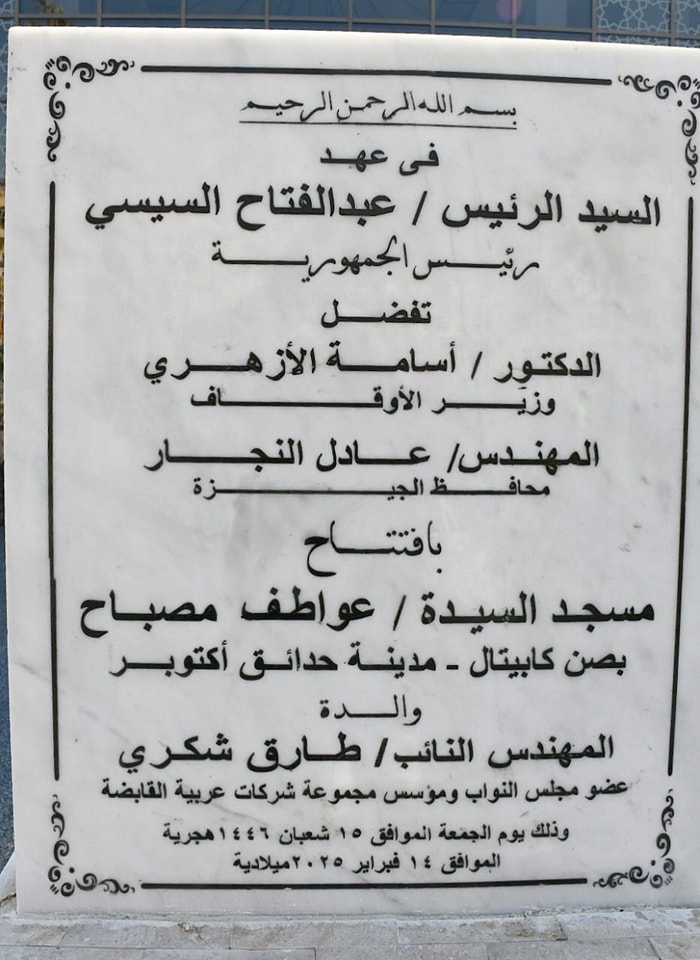 بسم الله الرحمن الرحيم
فى عهد
السيد الرئيس / عبدالفتاح السيسي
رئيس الجمهورية
تفضل
الدكتور / أسامة الأزهري
وزير الأوقاف
المهندس/ عادل النجار
محافظ الجيزة
بافتتاح
مسجد السيدة / عواطف مصباح
بصن كابيتال - مدينة حدائق أكتوبر
والدة
المهندس النائب/ طارق شكري
عضو مجلس النواب ومؤسس مجموعة شركات عربية القابضة
وذلك يوم الجمعة الموافق ١٥ شعبان ١٤٤٦هجرية
الموافق ١٤ فبراير ٢٠٢٥ميلادية